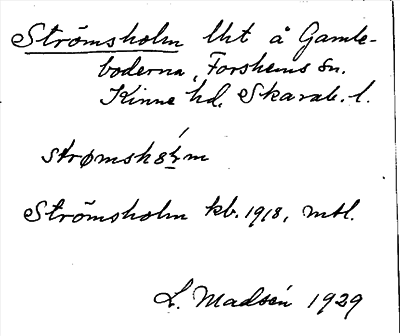 Strömsholm lht å Gamle-
boderna, Forshems sn.
Kinne hd, Skarab. l.
strømsh8ĺm
Strömsholm kb. 1918, mtl.
L. Madsén 1929